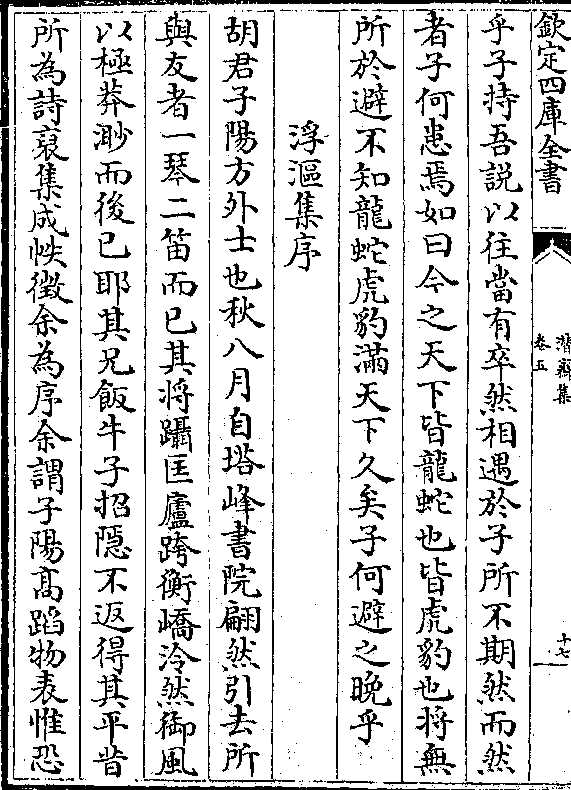 欽定四庫全書
潛齋集
卷五
十七
乎子持吾説以往當有卒然相遇於子所不期然而然
者子何患焉如曰今之天下皆龍蛇也皆虎豹也將無
所於避不知龍蛇虎豹滿天下久矣子何避之晚乎
浮漚集序
胡君子陽方外士也秋八月自塔峰書院翩然引去所
與友者一琴二笛而已其將躡匡廬跨衡嶠泠然御風
以極莽渺而後已耶其兄飯牛子招隠不返得其平昔
所為詩裒集成帙徵余為序余謂子陽髙蹈物表惟恐